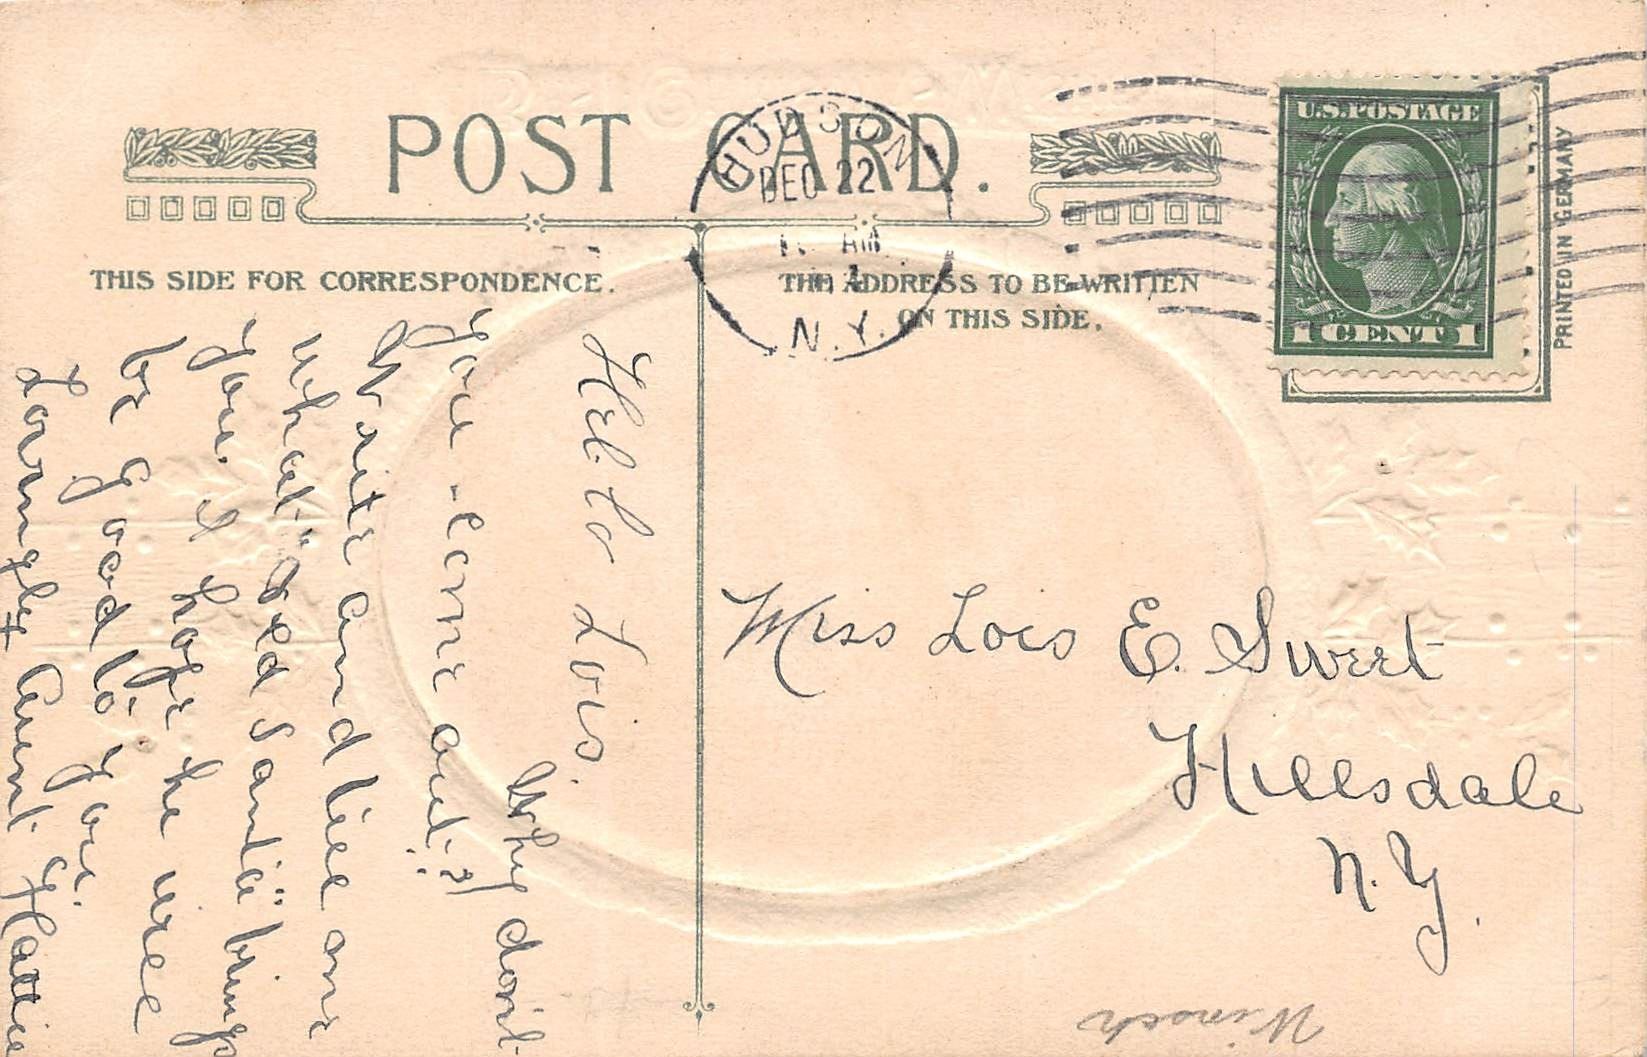 POST CARD.
THIS SIDE FOR CORRESPONDENCE.
THE ADDRESS TO BE WRITTEN
ON THIS SIDE.
HUDSON
DEC 22
AM
N.Y.
U.S. POSTAGE
1 CENT 1
PRINTED IN GERMANY
Hello Lois.
Why don't
you come out?
Write and tell me
what "Old Santa" brings
you. I hope he will
be good to you.
Lovingly Aunt Hattie
Miss Lois E. Sweet
Hillsdale
N.Y.